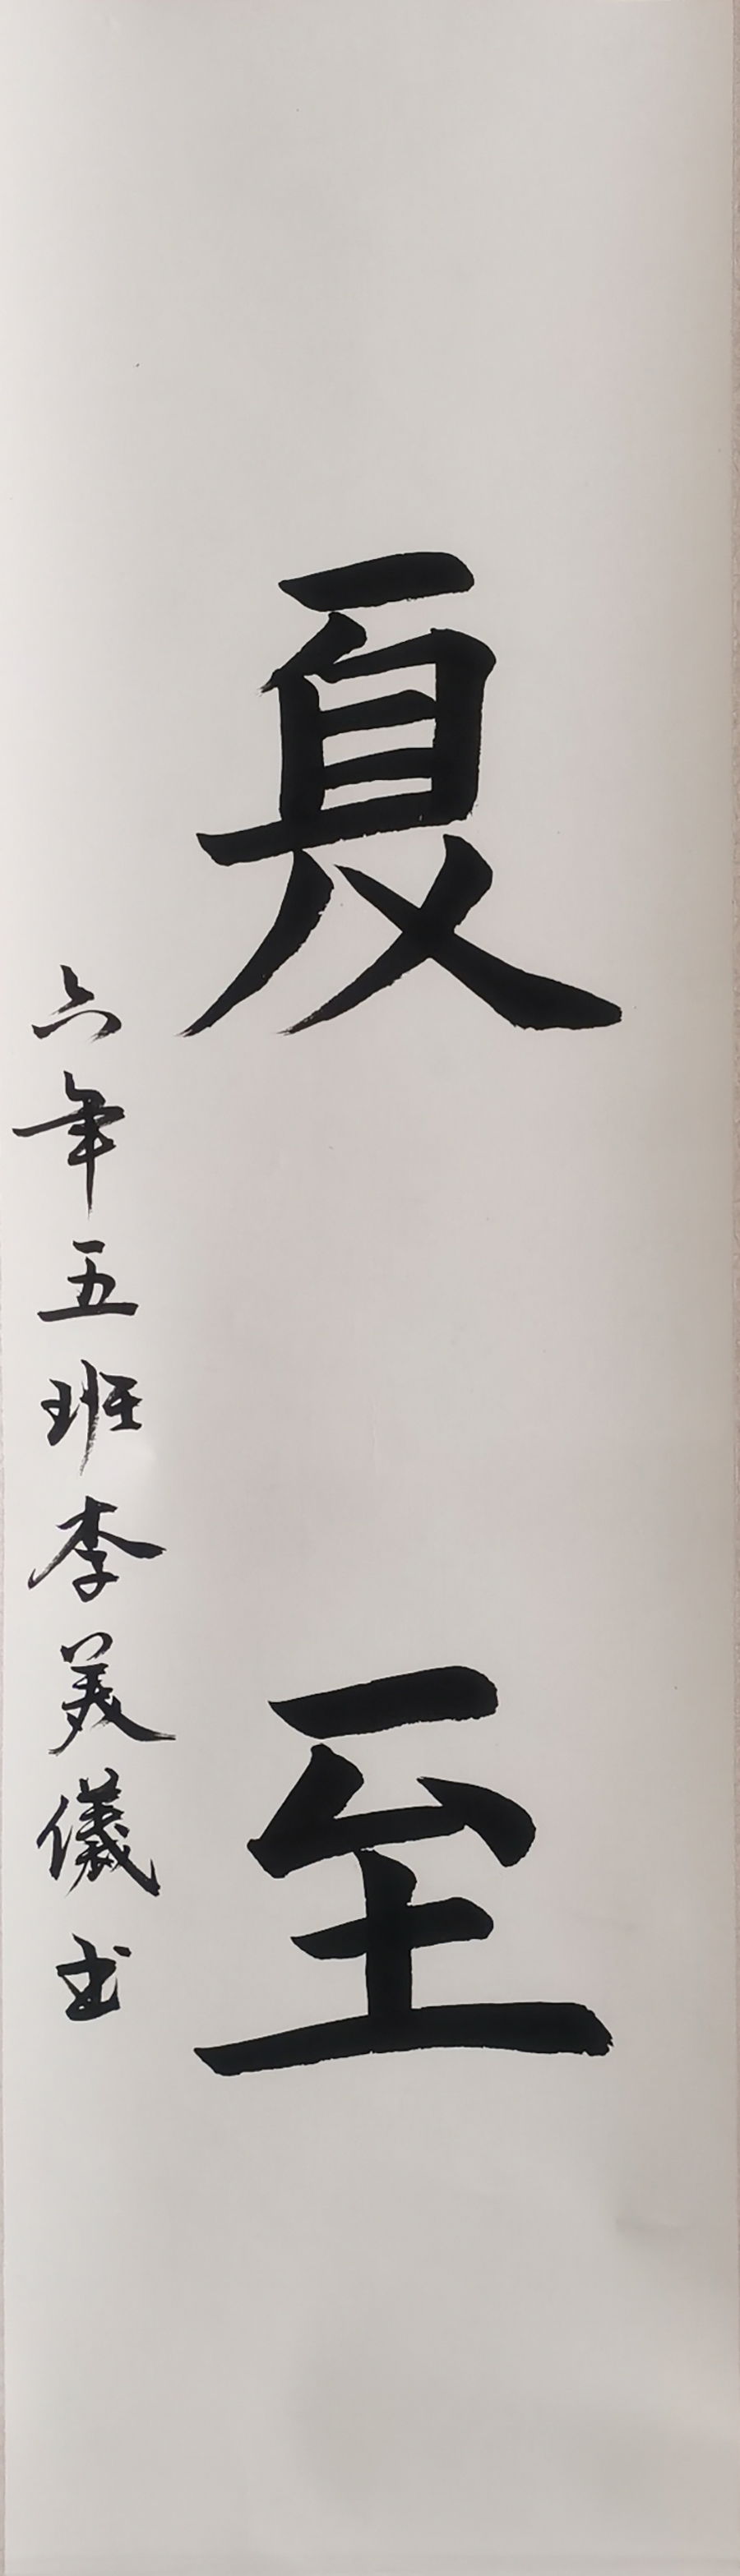 夏至
六年五班李美儀书